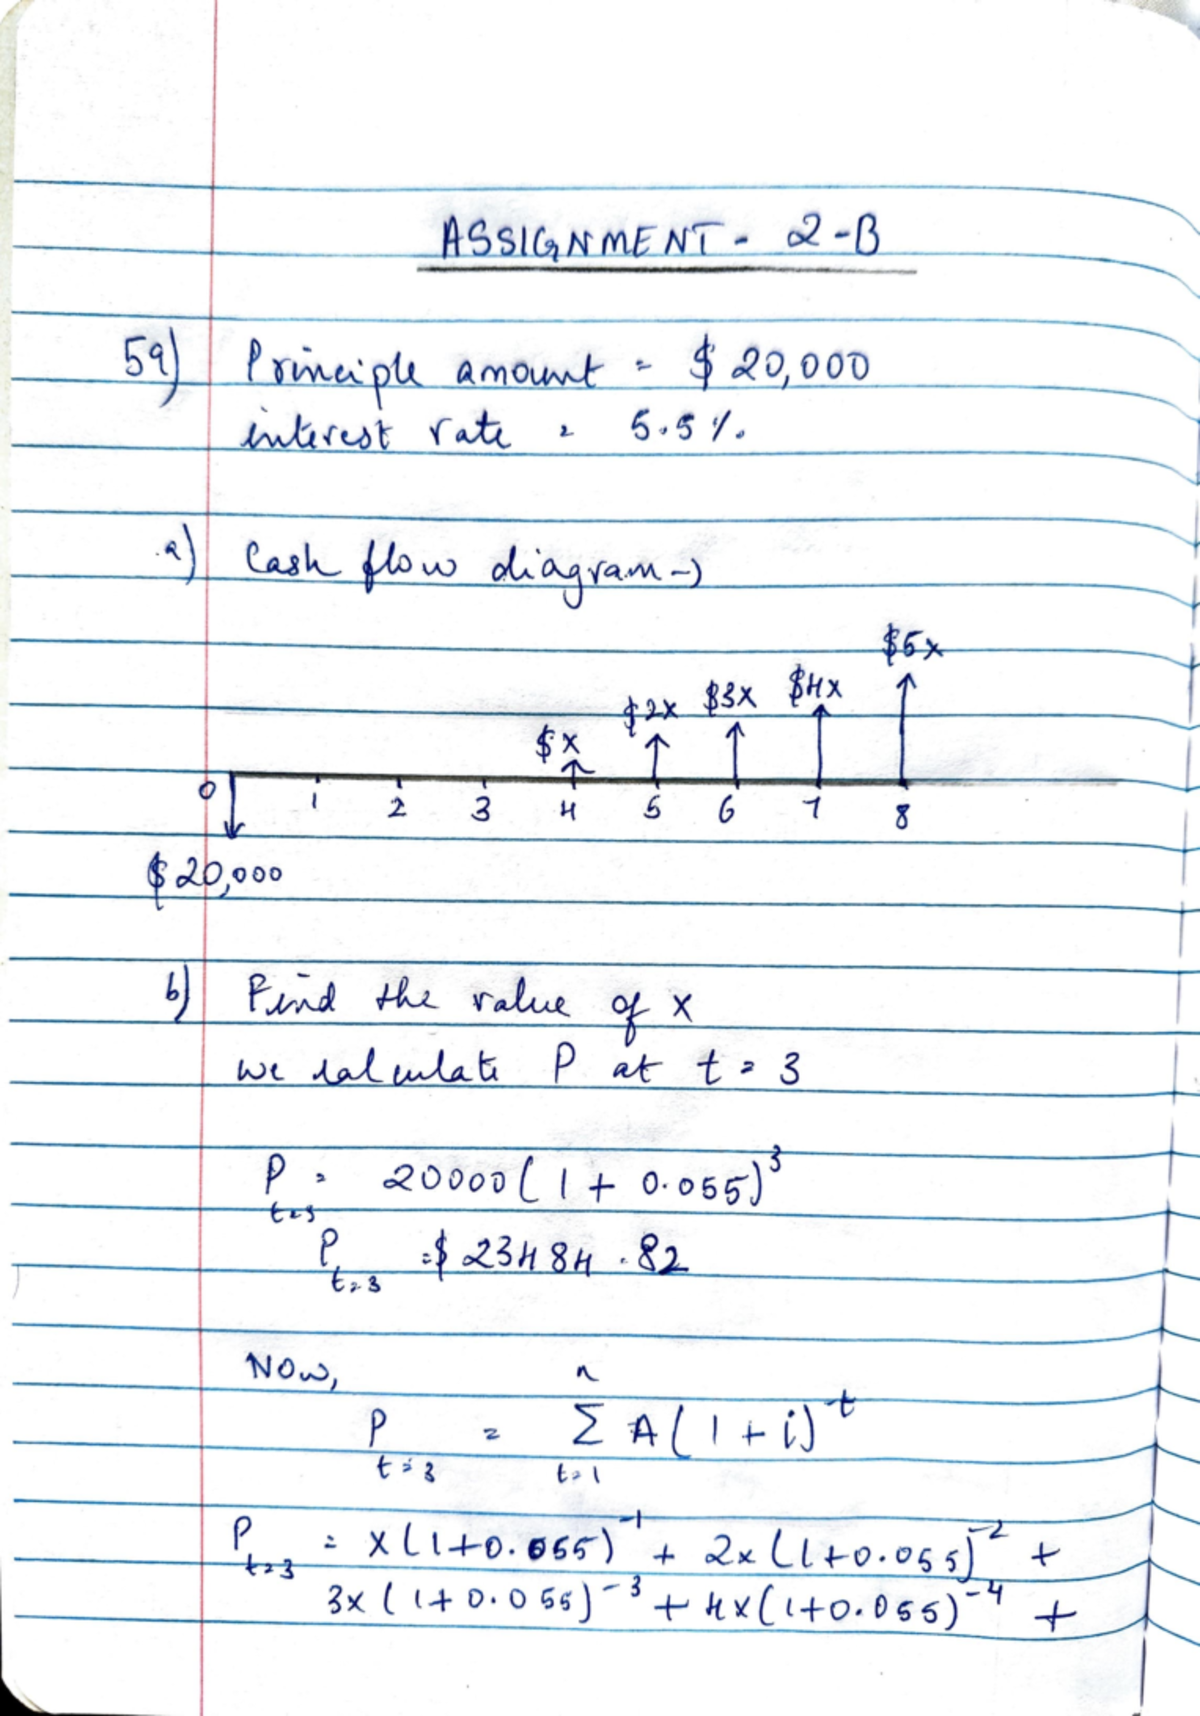 ASSIGNMENT - 2-B
59) Principle amount = $ 20,000
interest rate = 5.5 %.
a) Cash flow diagram →
$5x
$x $2x $3x $4x
0 1 2 3 4 5 6 7 8
$ 20,000
b) Find the value of x
we calculate P at t = 3
P t=3 = 20000 ( 1 + 0.055)^3
P t=3 = $ 23484.82
NOW,
P t=3 = n Σ t=1 A ( 1 + i)^-t
P t=3 = x (1+0.055)^-1 + 2x (1+0.055)^-2 +
3x (1+0.055)^-3 + 4x (1+0.055)^-4 +